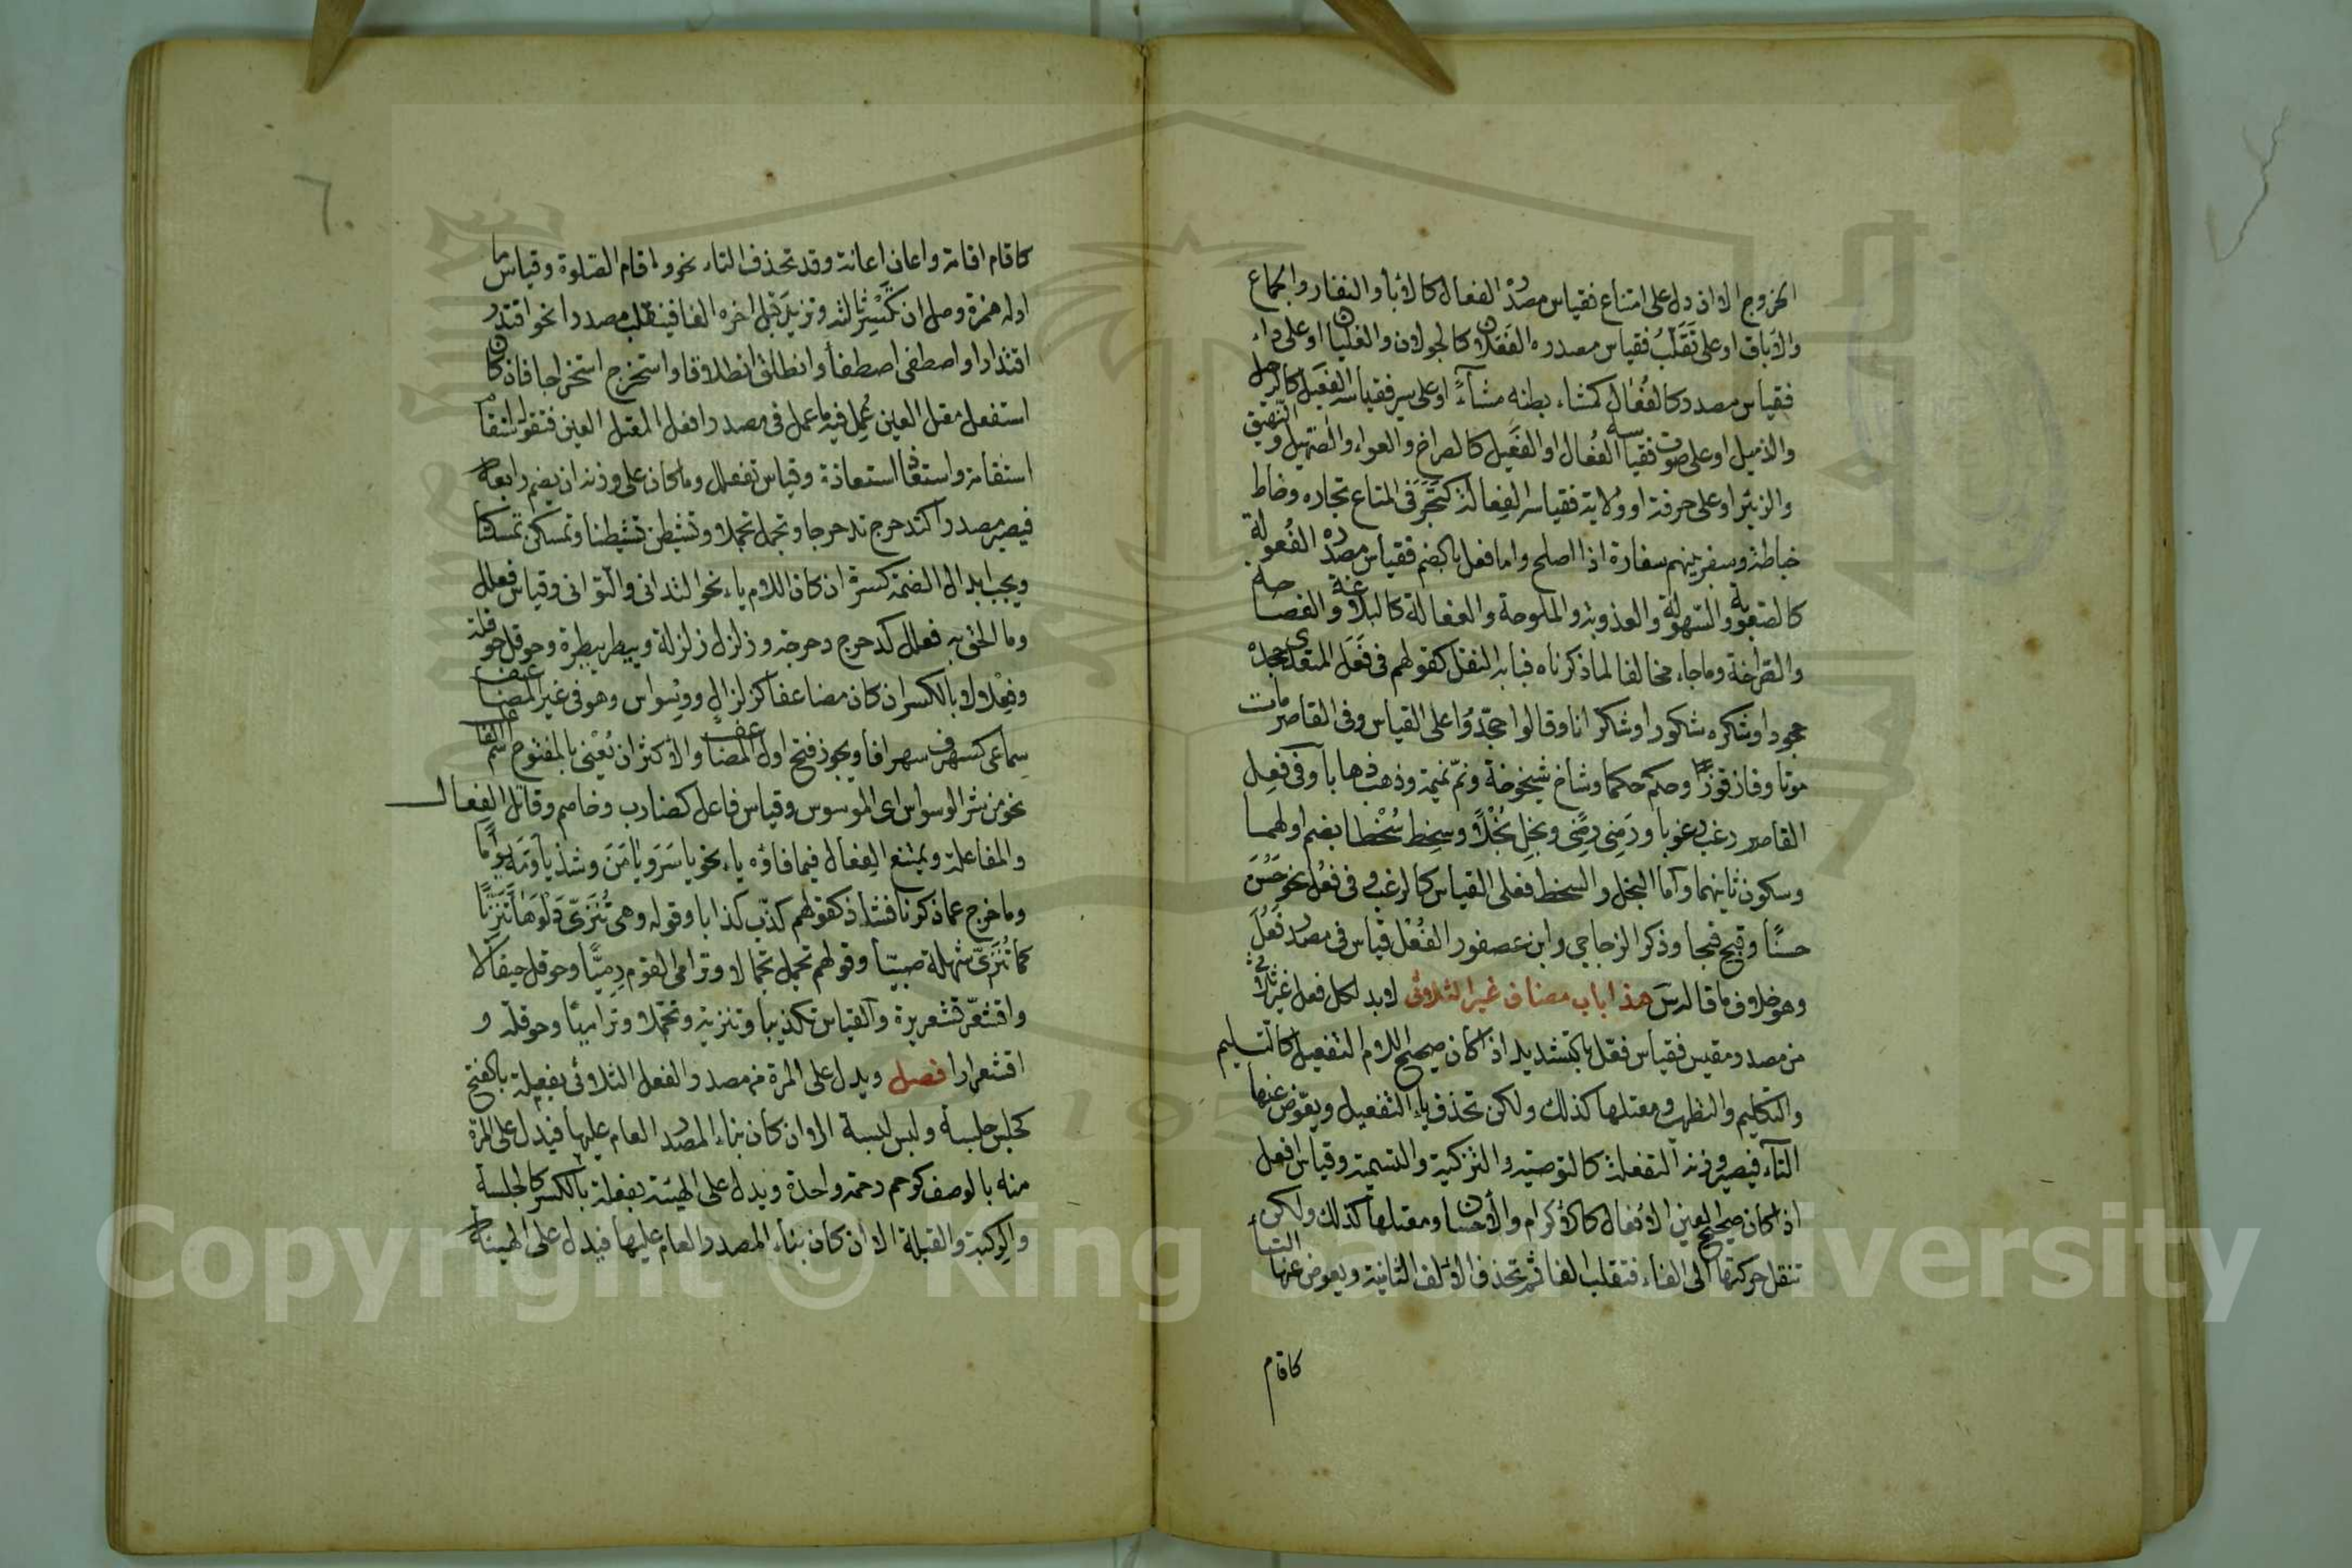 الخروج الا ان دل على امتناع فقياس مصدره الفعال كالاباء والنفار والجماح
والاباق او على تقلب فقياس مصدره الفعلان كالجولان والغليان او على داء
فقياس مصدره كالفُعَال كمشاء بطنه مشاءً او على سير فقياسه الفعيل كالرحيل
والذميل او على صوت فقياسه الفُعال او الفَعيل كالصراخ والعواء والصهيل والنهيق
والزئير او على حرفة او ولاية فقياسه الفِعالة كتَجَرَ في المتاع تجاره وخاط
خياطة وسفر بينهم سفارة اذا اصلح واما فعل بالضم فقياس مصدره الفُعولة
كالصعوبة والسهولة والعذوبة والملوحة والفعالة كالبلاغة والفصاحة
والصراخة وما جاء مخالفا لما ذكرناه فبابه النقل كقولهم في فَعَلَ المتعدي جحده
جحودا وشكره شكورا وشكرانا وقالوا جحدًا على القياس وفي القاصر مات
موتا وفاز فوزًا وحكم حكما وشاخ شيخوخة ونمّ نميمة وذهب ذهابا وفي فَعِل
القاصر رغب رغوبا ورَضِيَ رِضًى وبَخِل بُخْلًا وسخِط سُخْطا بضم اولهما
وسكون ثانيهما وأما البخل والسخط فعلى القياس كالرغب وفي فَعُل نحو حَسُنَ
حسنًا وقبح قبحا وذكر الزجاجي وابن عصفور ان الفُعْل قياس في مصدر فَعُلَ
وهو خلاف ما قاله س هذا باب مصادر غير الثلاثي لا بد لكل فعل غير ثلاثي
من مصدر مقيس فقياس فعّل بالتشديد اذا كان صحيح اللام التفعيل كالتسليم
والتكليم والتطهير ومعتلها كذلك ولكن تحذف ياء التفعيل ويعوض عنها
التاء فيصير وزنه التفعلة كالتوصية والتزكية والتسمية وقياس افعل
اذا كان صحيح العين الافعال كالاكرام والاحسان ومعتلها كذلك ولكن
تنقل حركتها الى الفاء فتقلب الفا ثم تحذف الالف الثانية ويعوض عنها التاء
كاقام
٦٠
كاقام اقامة واعان اعانة وقد تحذف التاء نحو واقام الصلوة وقياس ما
اوله همزة وصل ان تكسر ثالثه وتزيد قبل اخره الفا فينقلب مصدرا نحو اقتدر
اقتدارا واصطفى اصطفاء وانطلق انطلاقا واستخرج استخراجا فان كان
استفعل معتل العين عُمِل فيه ما عمل في مصدر افعل المعتل العين فتقول استقام
استقامة واستعاذ استعاذة وقياس تفعلل وما كان على وزنه ان يضم رابعه
فيصير مصدرا كتدحرج تدحرجا وتجمل تجملا وتشيطن تشيطنا وتمسكن تمسكنا
ويجب ابدال الضمة كسرة ان كان اللام ياء نحو التداني والتواني وقياس فعلل
وما الحق به فعللة كدحرج دحرجة وزلزل زلزلة وبيطر بيطرة وحوقل حوقلة
وفِعْلالا بالكسر ان كان مضاعفا كزلزال ووسواس وهو في غير المضاعف
سماعي كسرهف سرهافا ويجوز فتح اول المضاعف والاكثر ان يُعْنى بالمفتوح اسم الفاعل
نحو من شر الوسواس اى الموسوس وقياس فاعل كضارب وخاصم وقاتل الفِعال
والمفاعلة ويمتنع الفعال فيما فاؤه ياء نحو ياسَرَ ويامَنَ وشذ ياوَمَه يِوامًا
وما خرج عما ذكرنا فشاذ كقولهم كذّب كذابا وقوله وهى تُنَزّي دَلْوَها تَنْزِيًّا
كما تُنَزّي شهلة صبيّا وقولهم تجمل تجمالا وترامى القوم رِمِيًّا وحوقل حيقالا
واقشعرّ قشعريرة والقياس تكذيبا وتنزية وتجملا وتراميًا وحوقلة و
اقشعرارا فصل ويدل على المرة من مصدر الفعل الثلاثي بفعلة بالفتح
كجلس جلسة ولبس لبسة الا ان كان بناء المصدر العام عليها فيدل على المرة
منه بالوصف كرحم رحمة واحدة ويدل على الهيئة بفعلة بالكسر كالجلسة
والركبة والقتلة الا ان كان بناء المصدر العام عليها فيدل على الهيئة
Copyright © King Saud University
195